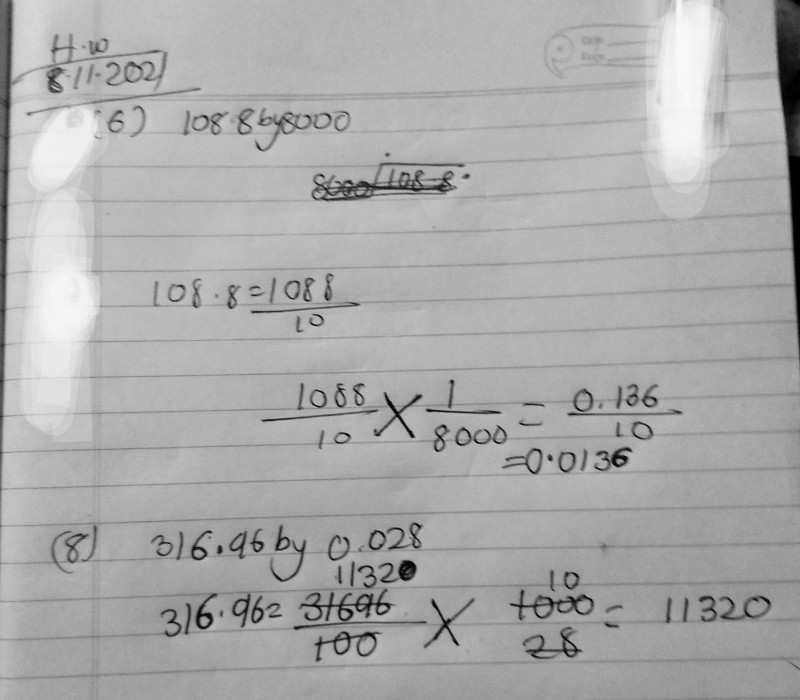 H.W
8.11.2021
(6) 108.8 by 8000
8000 108.8.
108.8 = 1088
10
1088 × 1 = 0.136
10 8000 10
= 0.0136
(8) 316.96 by 0.028
11320 10
316.96 = 31696 × 1000 = 11320
100 28